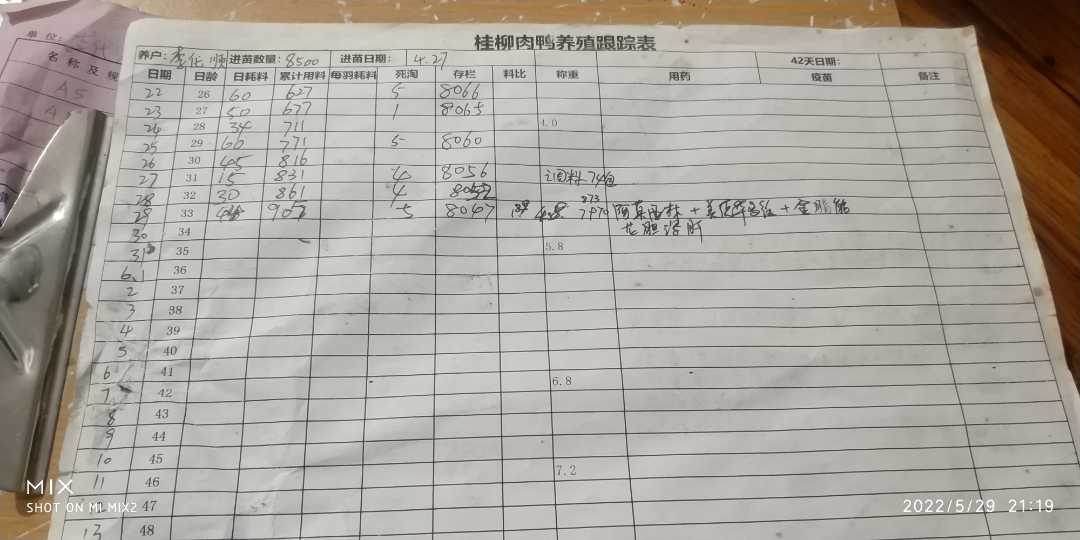 单位:
名称及规
A5
桂柳肉鸭养殖跟踪表
养户: 进苗数量: 8500 进苗日期: 4.27 42天日期:
日期 日龄 日耗料 累计用料 每羽耗料 死淘 存栏 料比 称重 用药 疫苗 备注
22 26 60 627 5 8066
23 27 50 677 1 8065
24 28 34 711 4.0
25 29 60 771 5 8060
26 30 45 816
27 31 15 831 4 8056 74包
28 32 30 861 4 8052
29 33 5 8047 阿莫西林 + +
30 34 龙胆泻肝
31 35 5.8
6.1 36
2 37
3 38
4 39
5 40
6 41 6.8
7 42
8 43
9 44
10 45 7.2
11 46
12 47
13 48
MIX
SHOT ON MI MIX2
2022/5/29 21:19